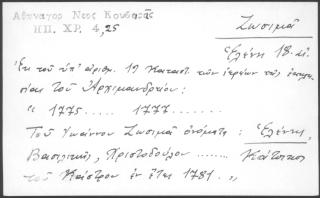 Αθηναγορ Νεος Κουβαρᾶς
ΗΠ. ΧΡ. 4, 25
Ζωσιμᾶ
Ἑλένη 18. αἰ.
Ἐκ τοῦ ὑπ' ἀριθμ. 19 Καταστ. τῶν ἐγγράφων τῆς
τοῦ Ἀρχιμανδρείου:
" 1775..... 1777.......
Τοῦ Ἰωάννου Ζωσιμᾶ ὀνόματα: Ἑλένης,
Βασιλικῆς, Χριστοδούλου ....... Κάτοικοι
τοῦ Κάστρου ἐν ἔτει 1781. "